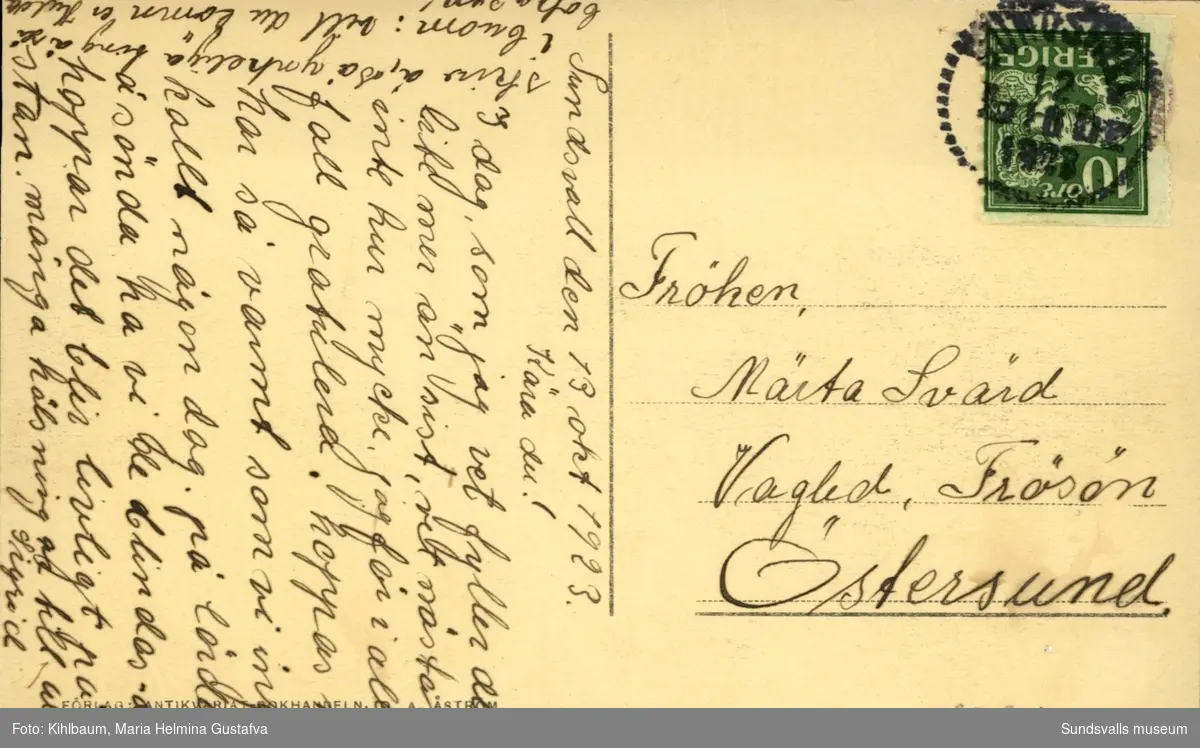 Sundsvall den 13 okt 1923.
Kära du!
I dag, som jag vet fyller du
litd mer än sist, vet nästa
inte hur mycke. jag för i alla
fall gratilerd. hoppas
har så varmt som vi int
kallt någon dag. på lörda
å sönda ha vi de blindas
hoppas det blir livligt på
stan. många hälsning
till
Sigrid
skriv
buom: vill du komm
SVERIGE
12
1923
10
ÖRE
Fröken,
Märta Svärd
Vagled, Frösön
Östersund.
FÖRLAG: ANTIKVARIAT-BOKHANDELN, C. A. ÅSTRÖM
Foto: Kihlbaum, Maria Helmina Gustafva
Sundsvalls museum